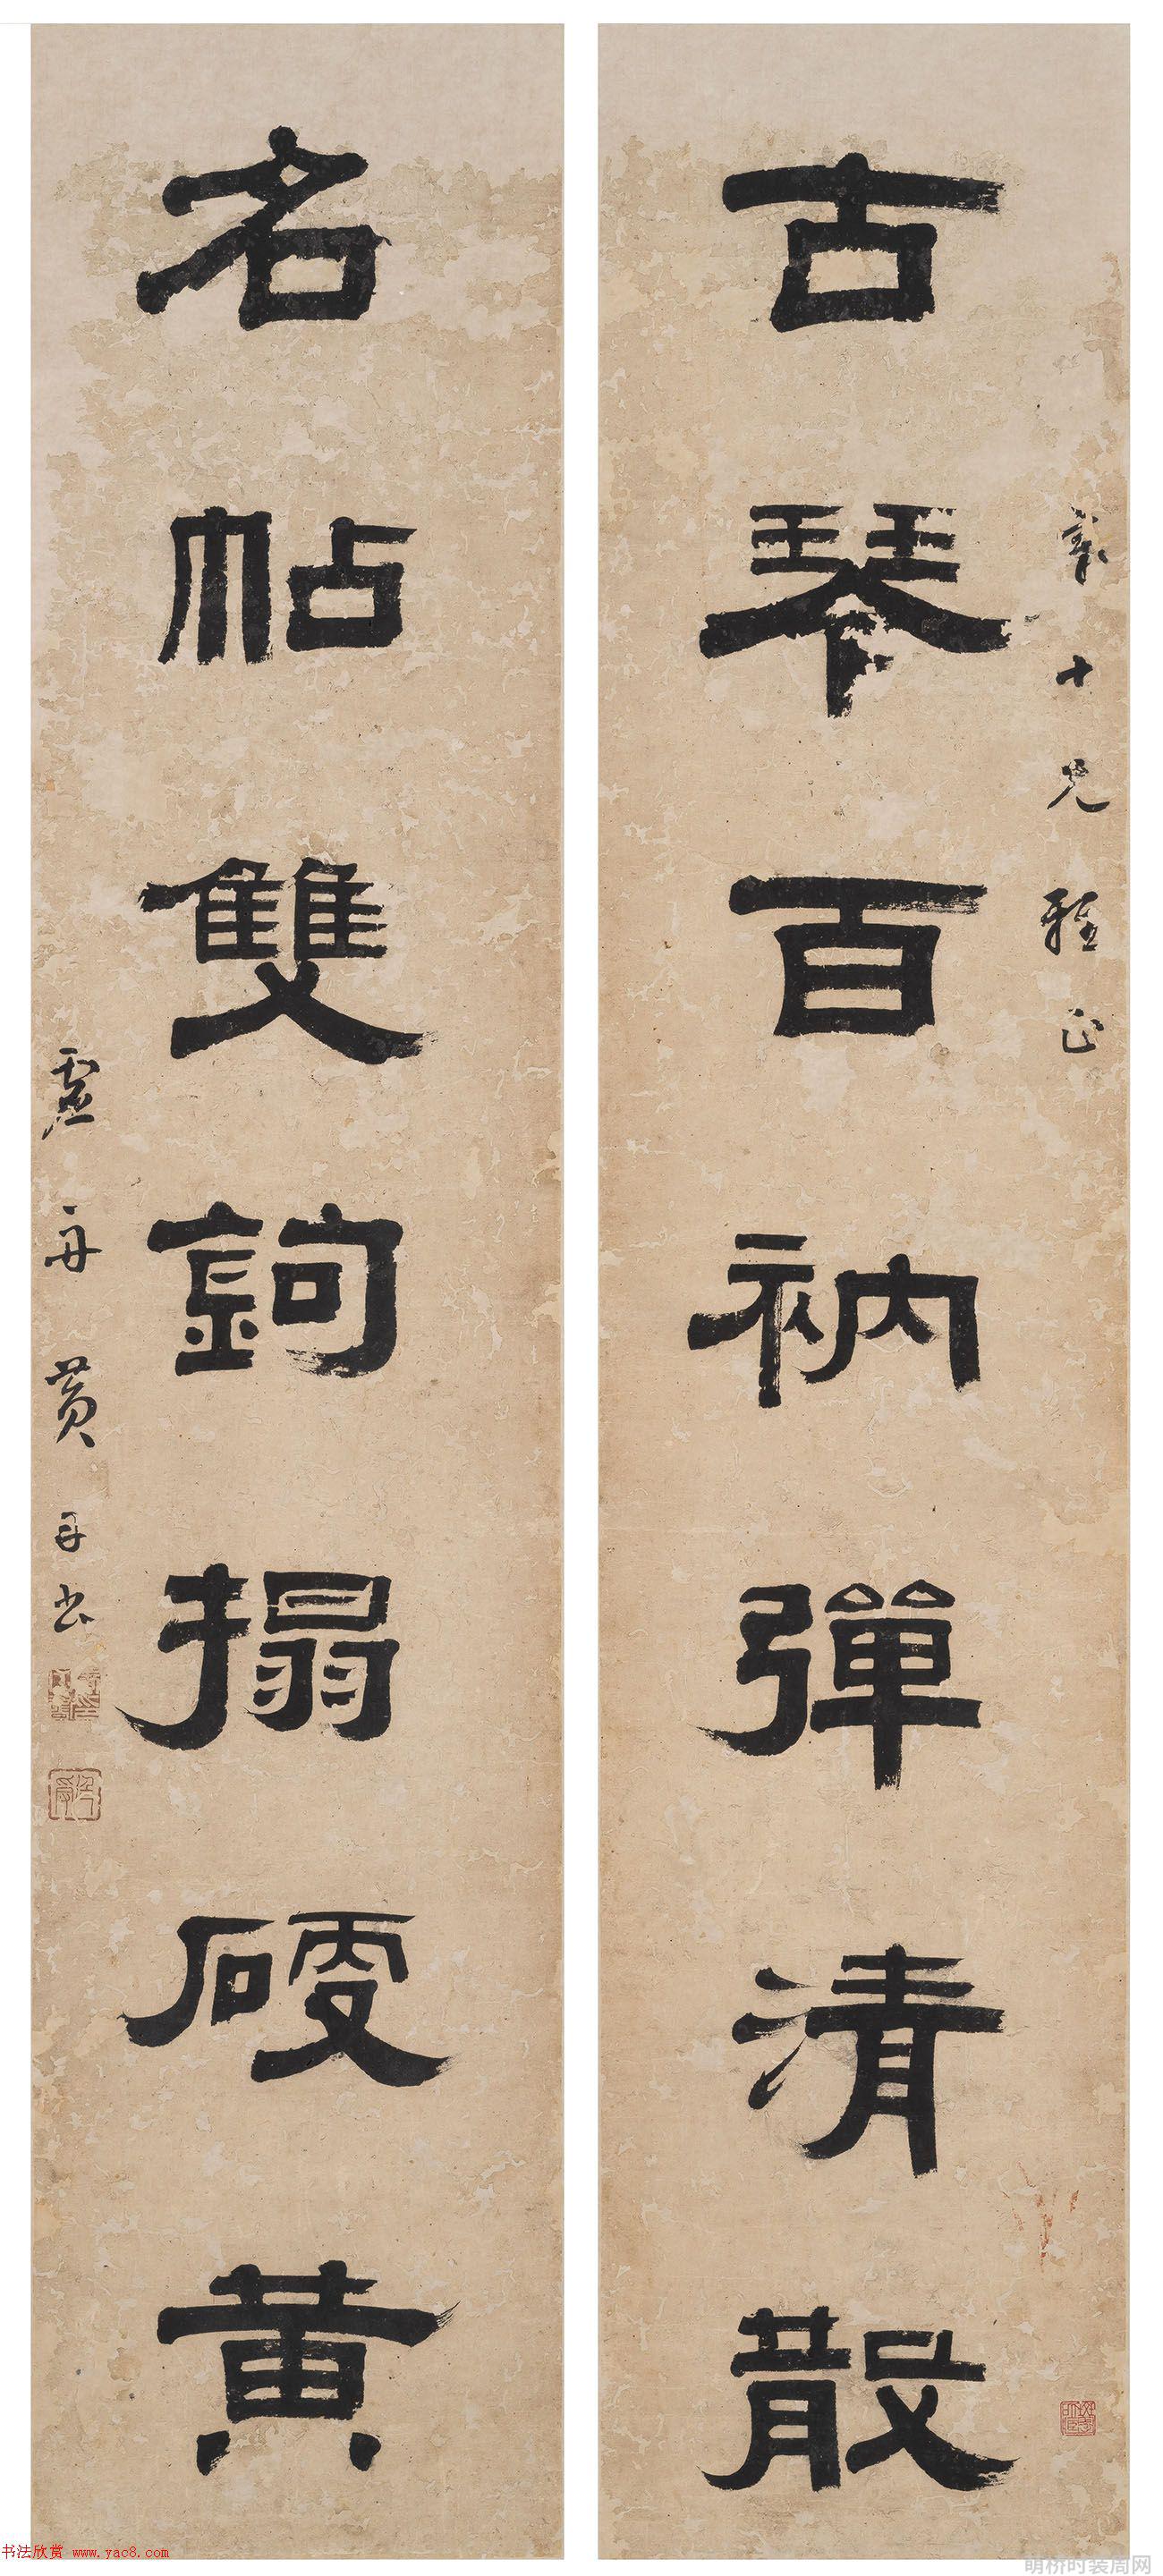 古琴百衲彈清散
十兄雅正
名帖雙鉤搨硬黃
虛舟黃
书法欣赏 www.yac8.com
明桥时装周网